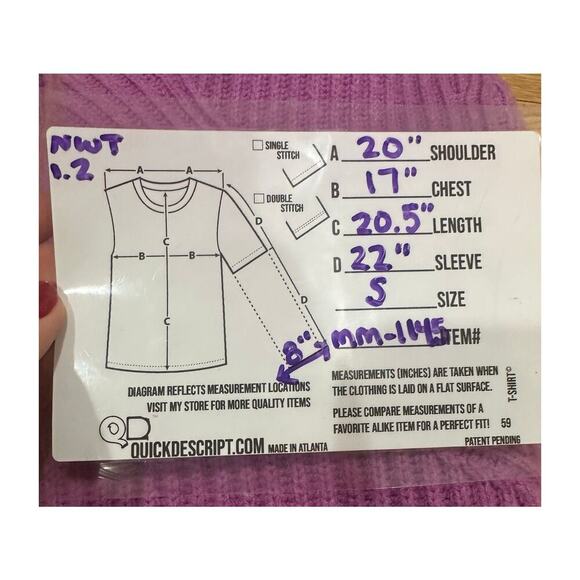 NWT
1.2
SINGLE
STITCH
DOUBLE
STITCH
A A
B B
C
C
D
D
8"
A 20" SHOULDER
B 17" CHEST
C 20.5" LENGTH
D 22" SLEEVE
S SIZE
ITEM#
MEASUREMENTS (INCHES) ARE TAKEN WHEN
THE CLOTHING IS LAID ON A FLAT SURFACE.
PLEASE COMPARE MEASUREMENTS OF A
FAVORITE ALIKE ITEM FOR A PERFECT FIT! 59
PATENT PENDING
T-SHIRT©
DIAGRAM REFLECTS MEASUREMENT LOCATIONS
VISIT MY STORE FOR MORE QUALITY ITEMS
QD
QUICKDESCRIPT.COM MADE IN ATLANTA